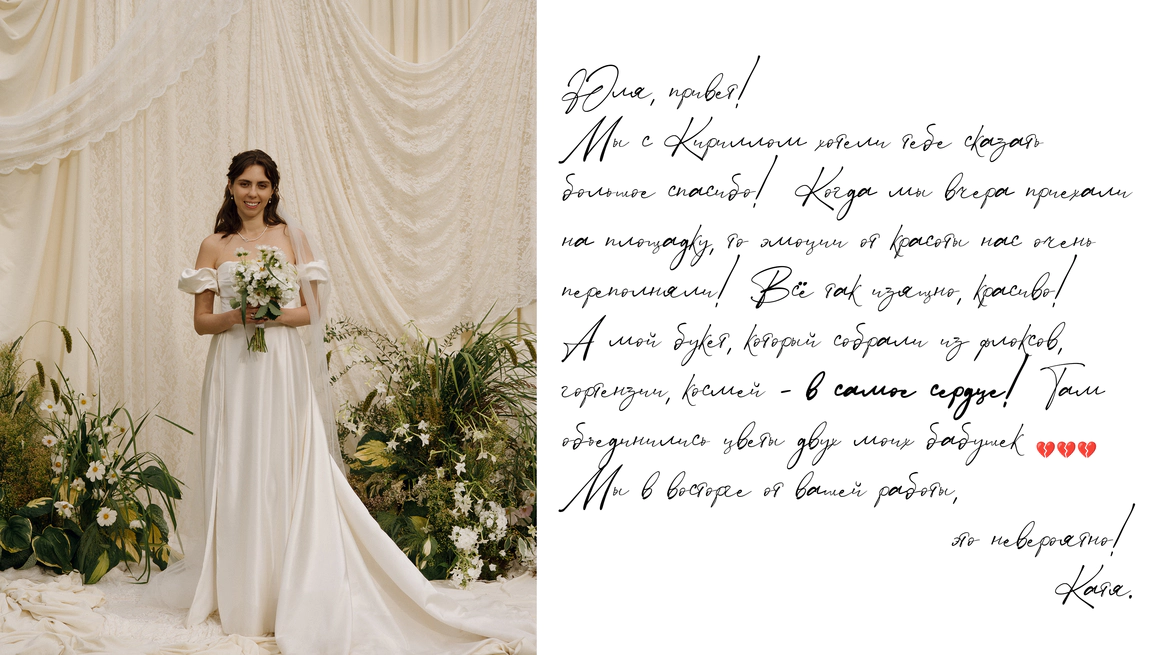 Юля, привет!
Мы с Кириллом хотели тебе сказать
большое спасибо! Когда мы вчера приехали
на площадку, то эмоции от красоты нас очень
переполняли! Всё так изящно, красиво!
А мой букет, который собрали из флоксов,
гортензии, космей - в самое сердце! Там
объединились цветы двух моих бабушек 💔💔💔
Мы в восторге от вашей работы,
это невероятно!
Катя.